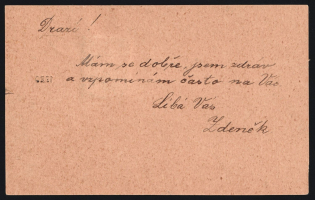 Drazí!
Mám se dobře, jsem zdráv
a vzpomínám často na Vás
Líbá Vás
Zdeněk